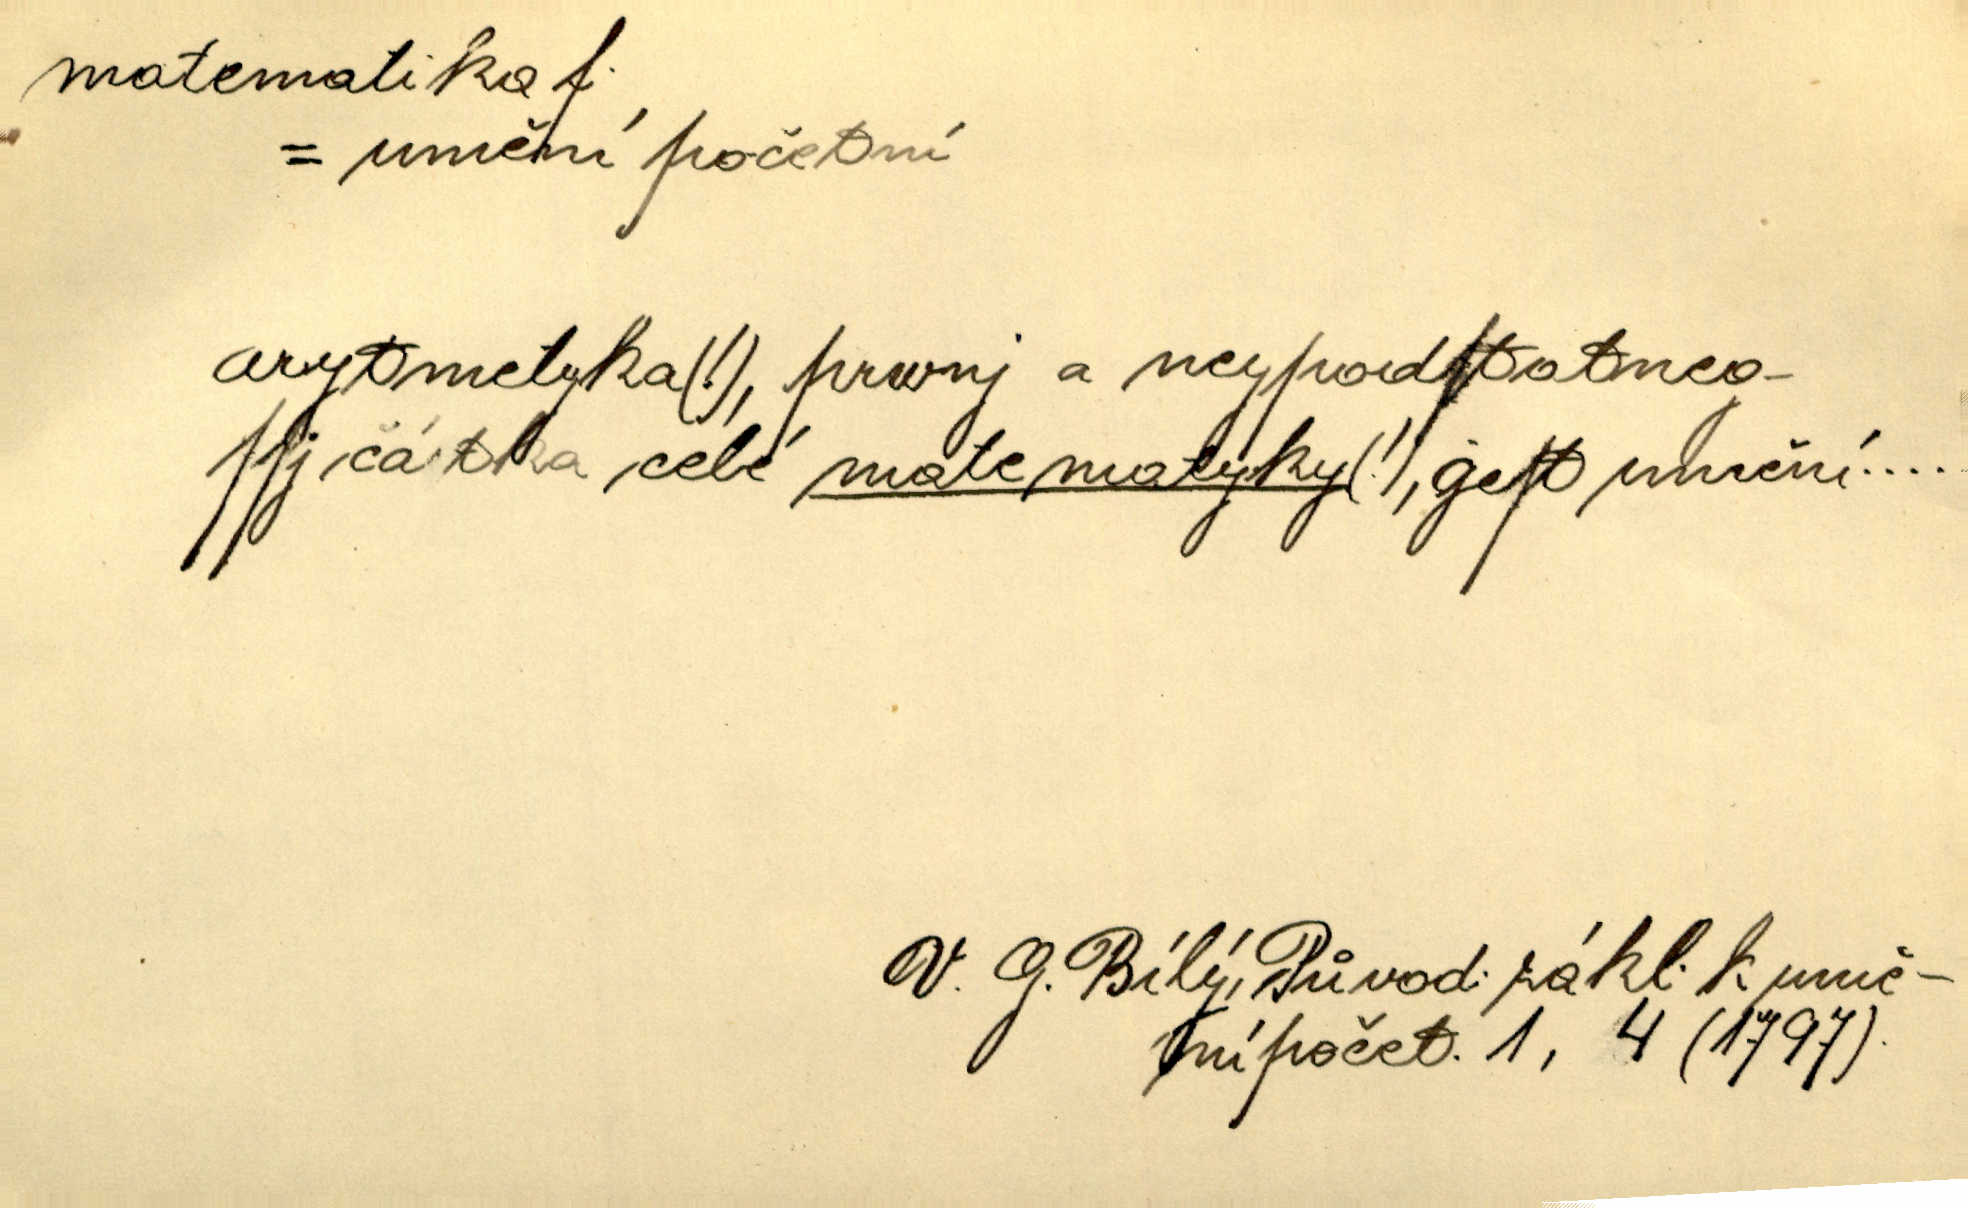 matematika f.
= umění početní
arytmetyka(!), prwnj a neypodſtatněg-
ſſj částka celé matematyky(!), geſt umění....
V. G. Bílý, Původ. zákl. k umě-
ní počet. 1, 4 (1797).